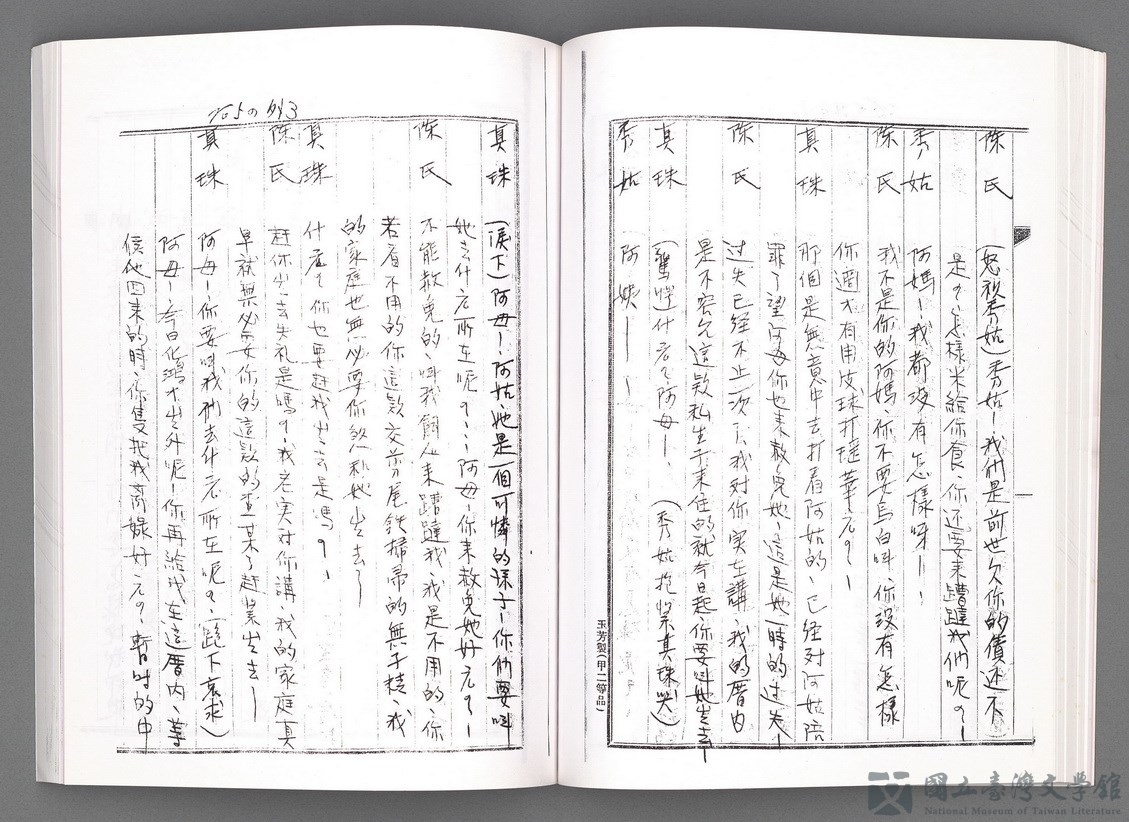 陳氏 (怒視秀姑)秀姑—我們是前世欠你的債还不
是？怎樣米給你食、你还要來蹧躂我們呢？—
秀姑 阿媽—我都沒有怎樣呀—！
陳氏 我不是你的阿媽、你不要烏白叫、你沒有怎樣
你過才有用皮球打瑶華元？—
真珠 那個是無意中去打着阿姑的、已経对阿姑陪
罪了望阿母你也來赦免她、這是她一時的过失—
陳氏 过失已経不止一次了、我对你実在講、我的厝内
是不容允這款私生子來住的就今日起、你要叫她出去
真珠 (驚愕)什么？阿母—！ (秀姑抱緊真珠哭)
秀姑 阿姨——！
玉芳製(甲二等品)
真珠 (淚下)阿母—、阿姑她是一個可憐的孩子—你們要叫
她去什么所在呢？…阿母—你來赦免她好元？—
陳氏 不能赦免的、叫我飼人來蹧躂我、我是不用的、你
若看不用的你這款交剪尾鉄掃帚的無子精、我
的家庭也無必要你、煞和她出去—
真珠 什么？你也要赶我出去是嗎？！
陳氏 赶你出去失礼是嗎？、我老実对你講、我的家庭真
早就無必要你的這款的查某了赶緊出去—
真珠 阿母—你要叫我們去什么所在呢？、(跪下哀求)
阿母—今日化鴻才出外呢—你再給我在這厝内、等
候他回來的時、你隻把我商線好元？、暫時的中